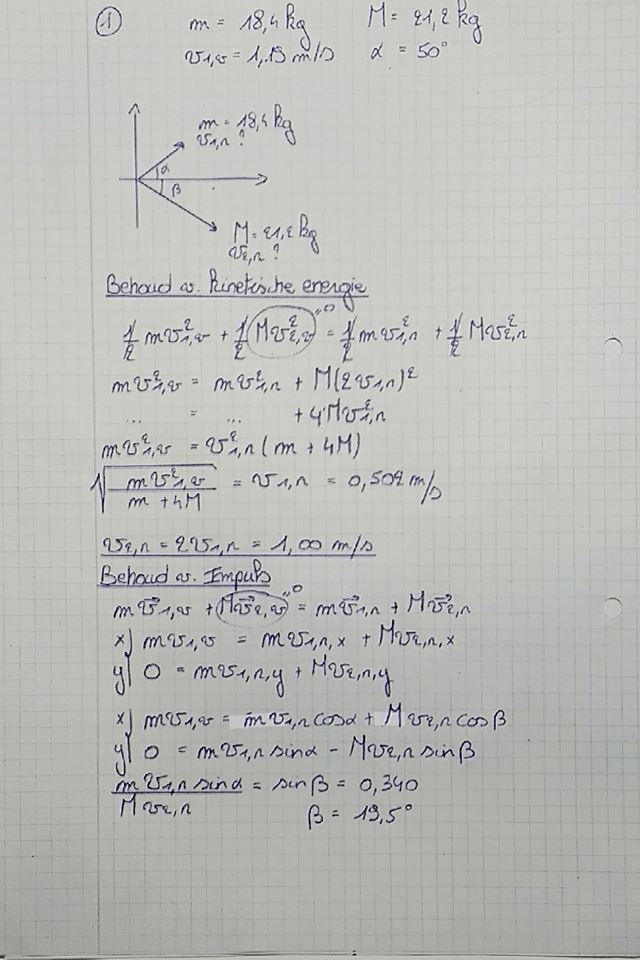 1 m = 18,4 kg M = 21,2 kg
v₁,ᵥ = 1,19 m/s α = 50°
m = 18,4 kg
v₁,ₙ ?
α
β
M = 21,2 kg
v₂,ₙ ?
Behoud v. kinetische energie
½ mv²₁,ᵥ + ½ Mv²₂,ᵥ "0 = ½ mv²₁,ₙ + ½ Mv²₂,ₙ
mv²₁,ᵥ = mv²₁,ₙ + M(2v₁,ₙ)²
... = ... + 4Mv²₁,ₙ
mv²₁,ᵥ = v²₁,ₙ (m + 4M)
√(mv²₁,ᵥ / m + 4M) = v₁,ₙ = 0,502 m/s
v₂,ₙ = 2v₁,ₙ = 1,00 m/s
Behoud v. Impuls
mv⃗₁,ᵥ + Mv⃗₂,ᵥ "0 = mv⃗₁,ₙ + Mv⃗₂,ₙ
x) mv₁,ᵥ = mv₁,ₙ,ₓ + Mv₂,ₙ,ₓ
y) 0 = mv₁,ₙ,y + Mv₂,ₙ,y
x) mv₁,ᵥ = mv₁,ₙ cosα + Mv₂,ₙ cosβ
y) 0 = mv₁,ₙ sinα - Mv₂,ₙ sinβ
mv₁,ₙ sinα / Mv₂,ₙ = sinβ = 0,340
β = 19,5°